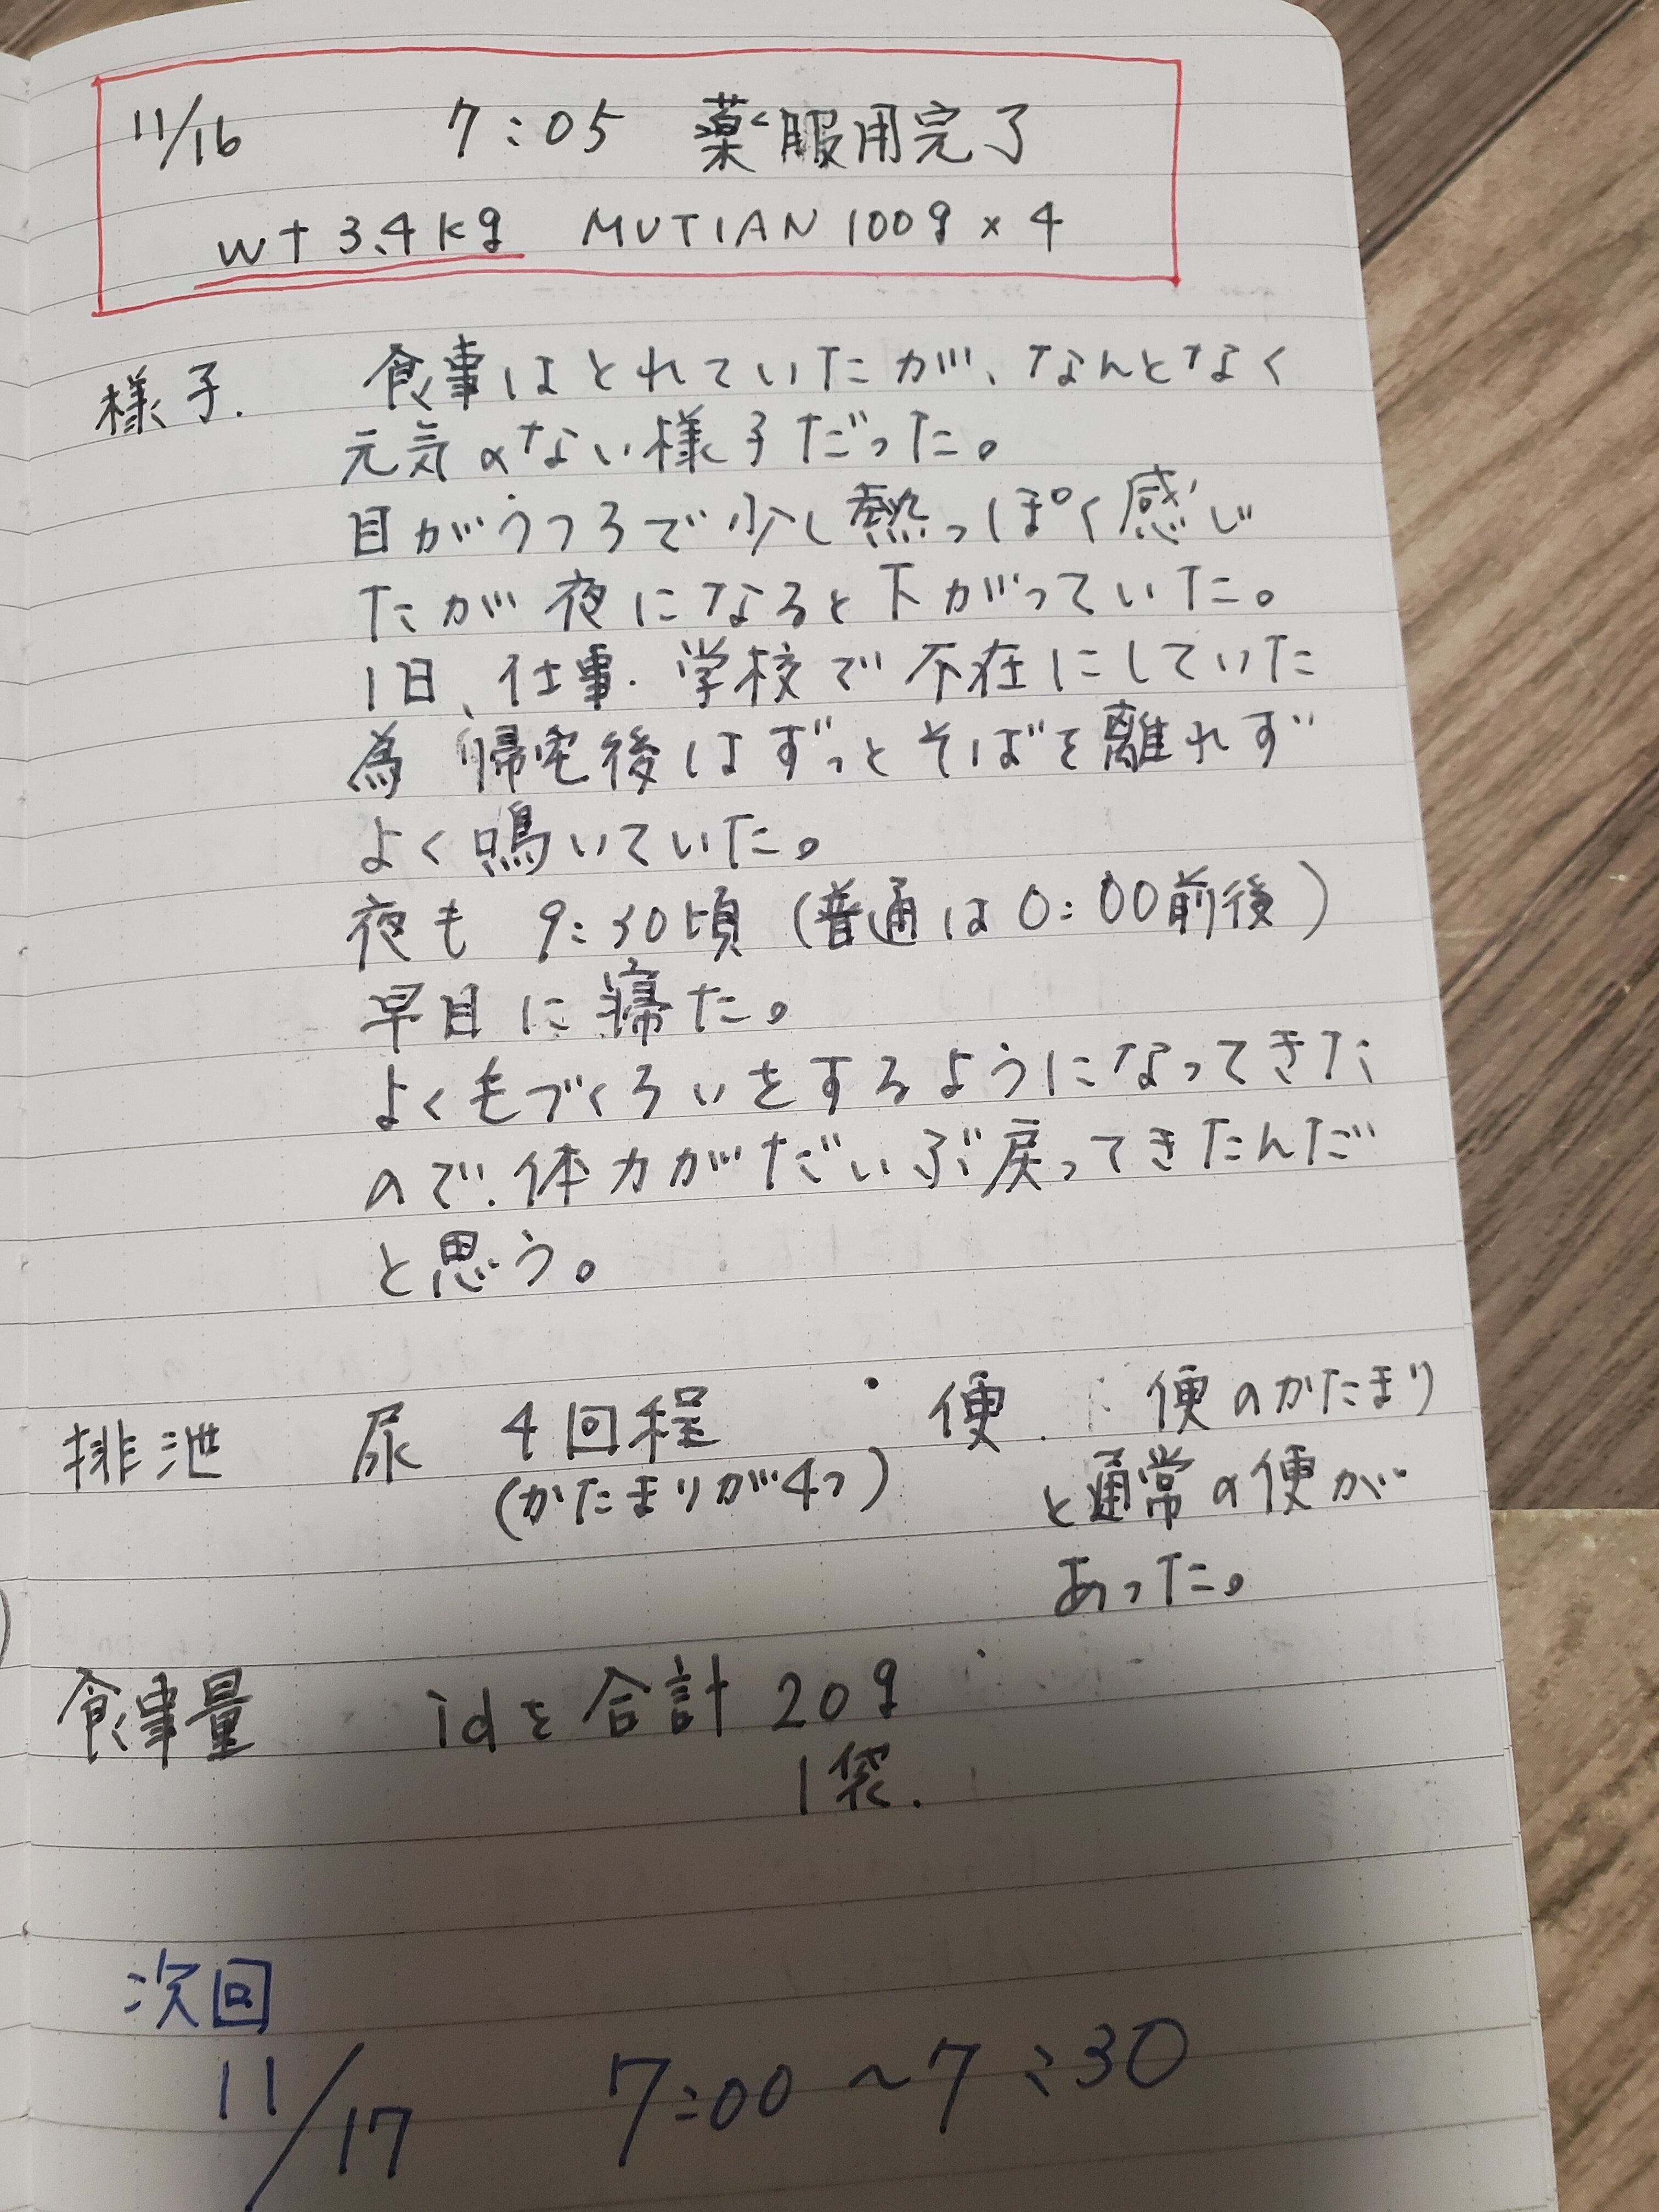 11/16 7:05 薬服用完了
wt 3.4kg MUTIAN 100g × 4
様子. 食事はとれていたが、なんとなく
元気のない様子だった。
目がうつろで少し熱っぽく感じ
たが夜になると下がっていた。
1日、仕事.学校で不在にしていた
為 帰宅後はずっとそばを離れず
よく鳴いていた。
夜も 9:30頃 (普通は0:00前後)
早目に寝た。
よく毛づくろいをするようになってきた
ので.体力がだいぶ戻ってきたんだ
と思う。
排泄 尿 4回程 ・ 便. 便のかたまり
(かたまりが4つ) と通常の便が
あった。
食事量 idを合計 20g
1袋.
次回
11/17 7:00〜7:30